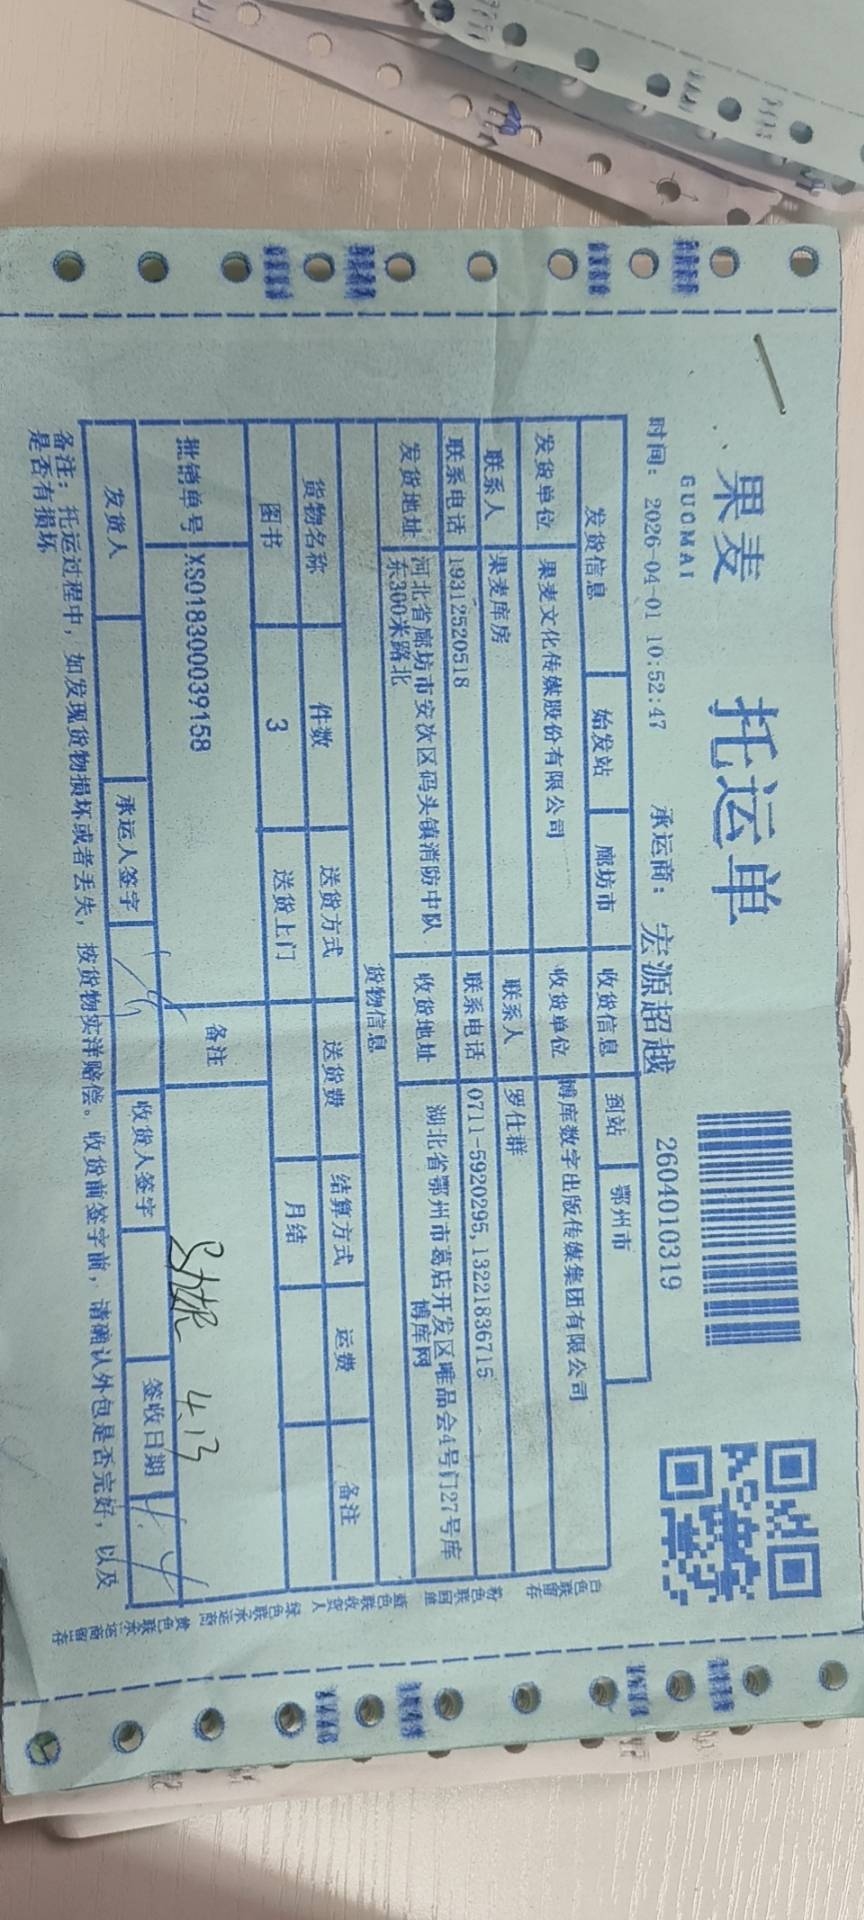 果麦
GUOMAI
托运单
时间： 2026-04-01 10:52:47 承运商： 宏源超越 2604010319
发货信息 始发站 廊坊市 收货信息 到站 鄂州市
发货单位 果麦文化传媒股份有限公司 收货单位 博库数字出版传媒集团有限公司
联系人 果麦库房 联系人 罗仕群
联系电话 19312520518 联系电话 0711-5920295,13221836715
发货地址 河北省廊坊市安次区码头镇消防中队 收货地址 湖北省鄂州市葛店开发区唯品会4号门27号库
东300米路北 博库网
货物信息
货物名称 件数 送货方式 送货费 结算方式 运费 备注
图书 3 送货上门 月结
批销单号 XS018300039158 备注
4.13
发货人 承运人签字 收货人签字 签收日期
备注：托运过程中，如发现货物损坏或者丢失，按货物实洋赔偿。收货前签字前，请确认外包是否完好，以及
是否有损坏
白色联留存 粉色联回单 蓝色联收货人 绿色联承运商 黄色联承运商留存